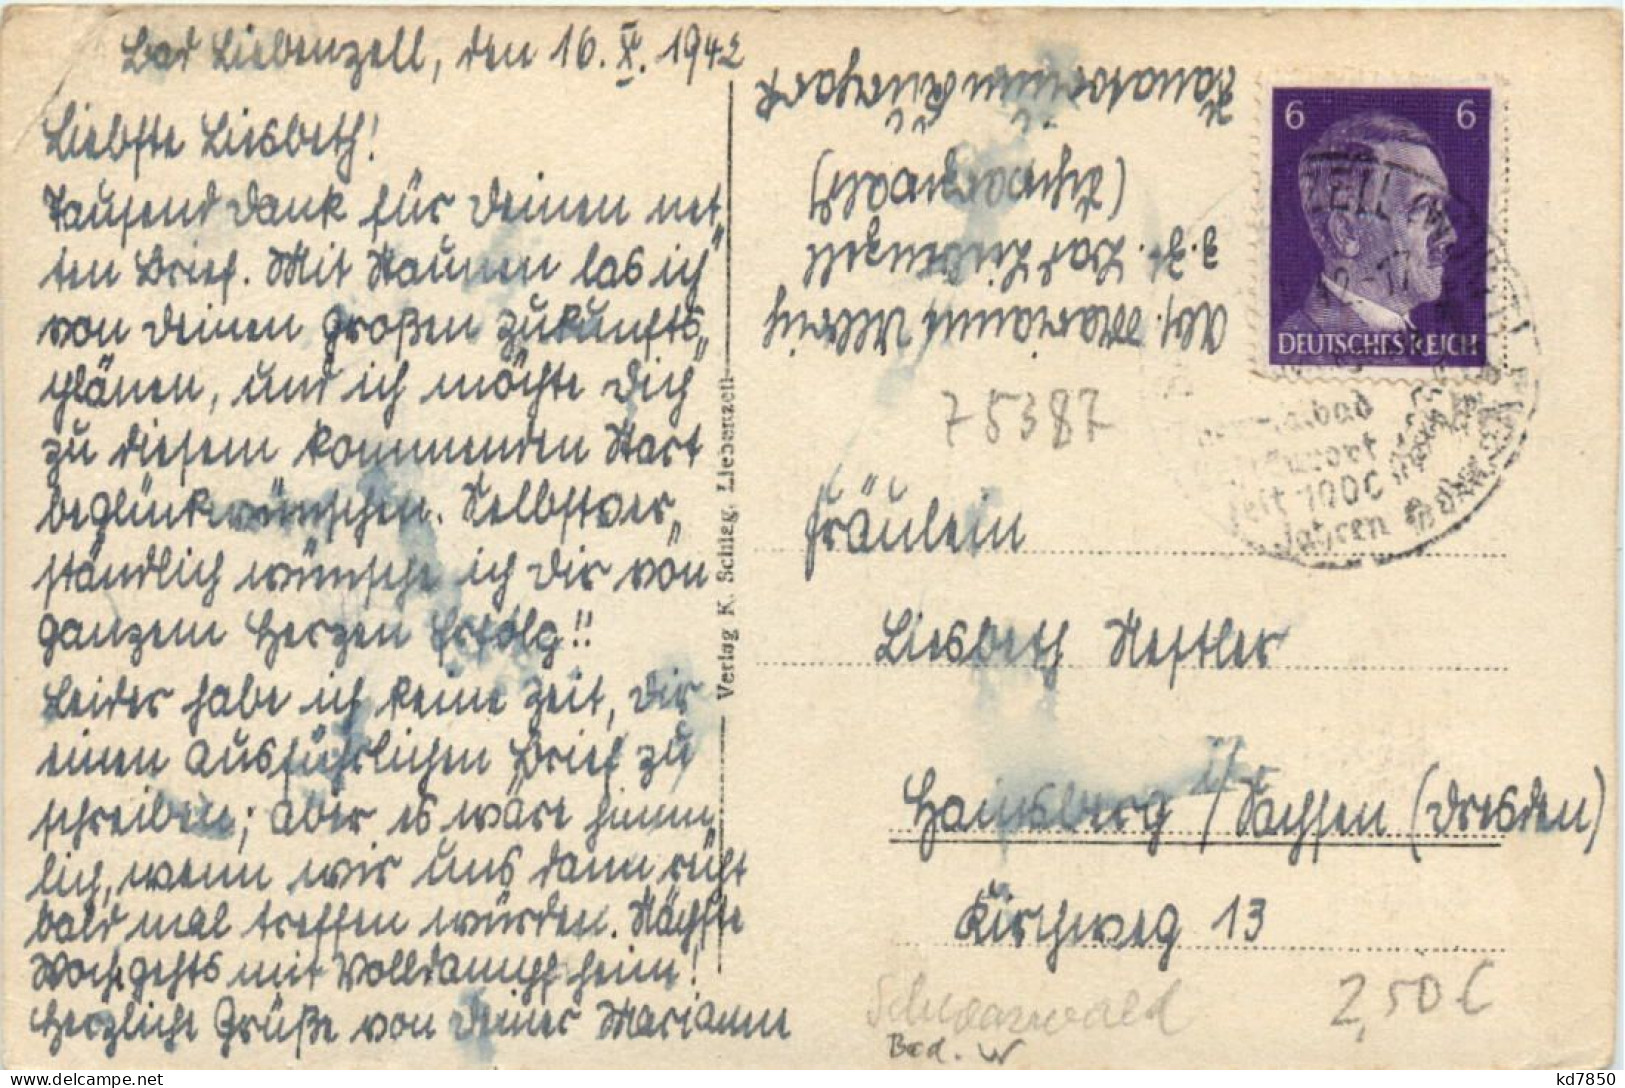 Bad Liebenzell, den 16. X. 1942
Liebste Liesbeth!
Tausend Dank für Deinen net„
ten Brief. Mit Staunen las ich
von Deinen großen Zukunfts„
plänen, und ich möchte Dich
zu diesem kommenden Start
beglückwünschen. Selbstver„
ständlich wünsche ich Dir von
ganzem Herzen Erfolg!!
Leider habe ich keine Zeit, Dir
einen ausführlichen Brief zu
schreiben; aber es wäre himm„
lich, wenn wir uns dann recht
bald mal treffen würden. Nächste
Woche gehts mit Volldampf heim!
Herzliche Grüße von Deiner Marianne
Verlag K. Schlag, Liebenzell
Abs. Marianne
z. Zt. Bad Liebenzell
(Schwarzwald)
Sanatorium Kurpark
6 6
DEUTSCHES REICH
ZELL
12-17
bad
seit 1000
Jahren
75387
Fräulein
Liesbeth Nestler
Hainsberg i/Sachsen (Dresden)
Kirchweg 13
Schwarzwald
Bad. W
2,50 €
kd7850